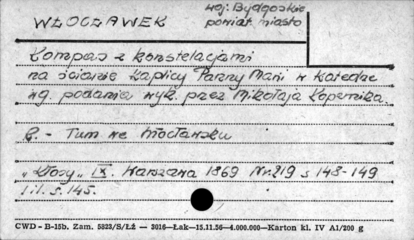 WŁOCŁAWEK
woj. Bydgoskie
powiat miasto
Kompas z konstelacjami
na ścianie kaplicy Panny Marii w katedrze
wg. podania wyk. przez Mikołaja Kopernika.
B. - Tum we Włocławku
"Kłosy" IX. Warszawa 1869 Nr. 219 s 148-149
i il. s. 145.
CWD - B-15b. Zam. 5823/S/ŁŻ — 3016—Łak—15.11.56—4.000.000—Karton kl. IV A1/200 g